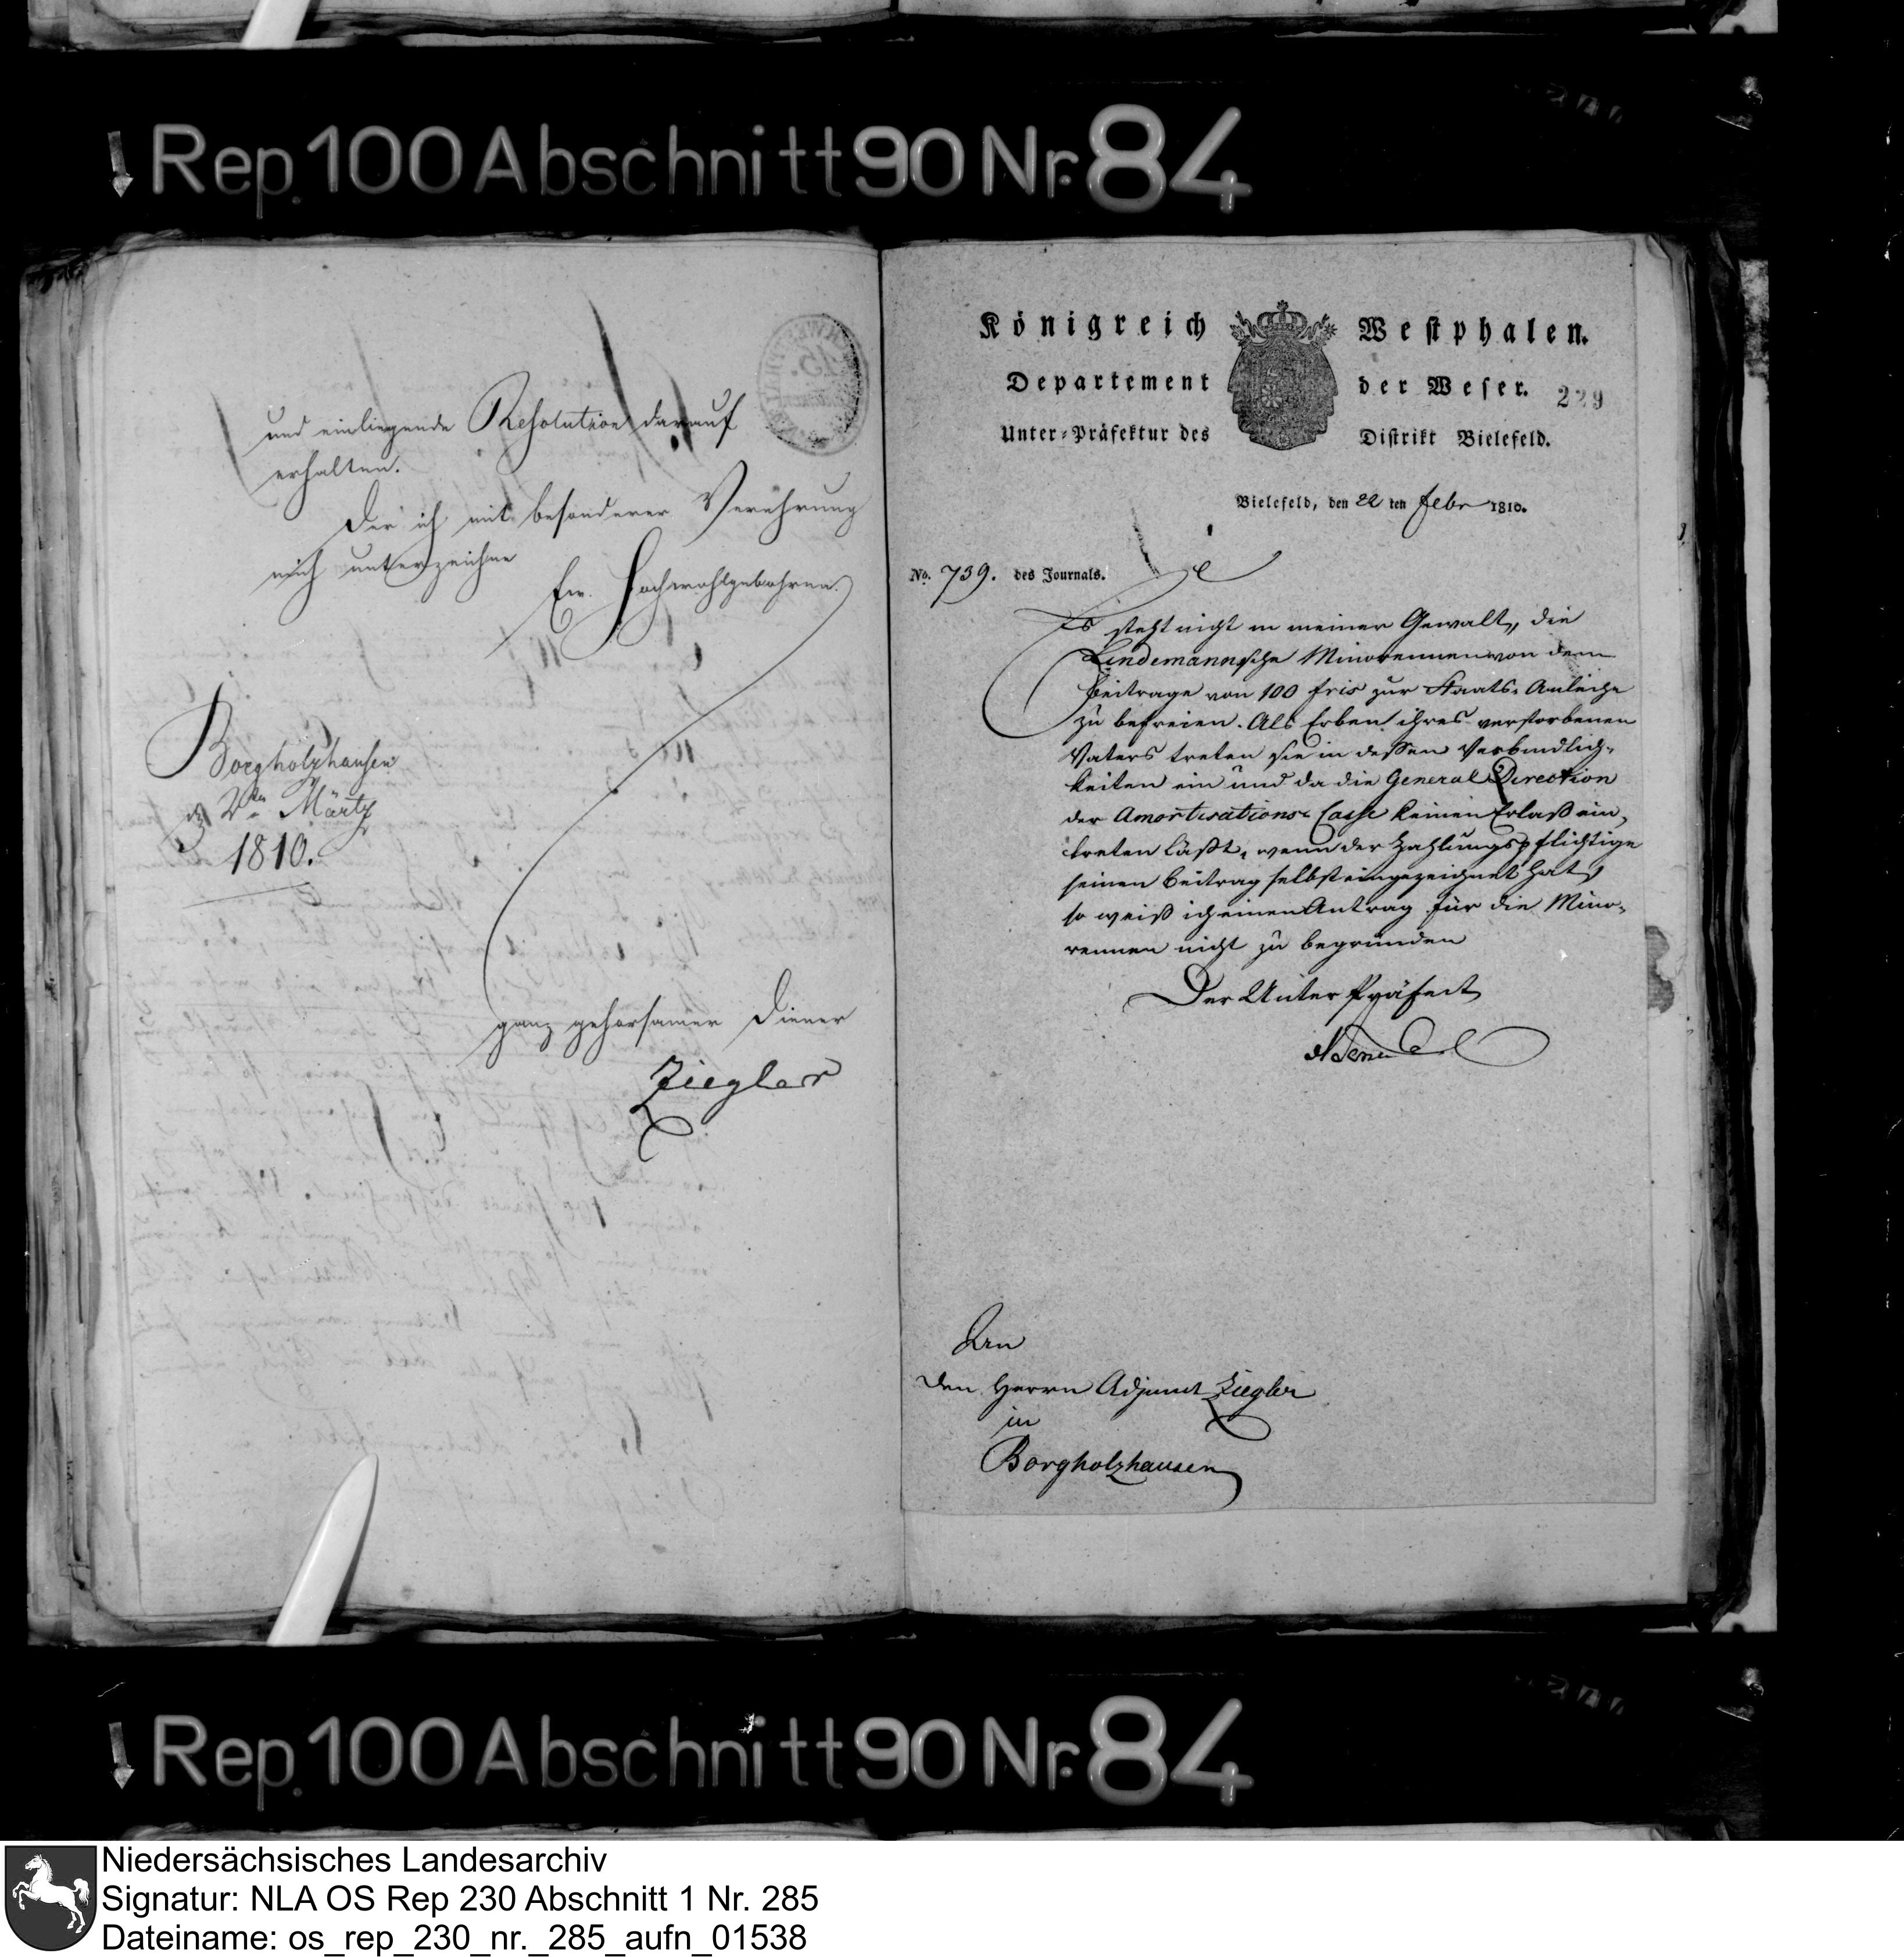 Rep. 100 Abschnitt 90 Nr. 84
und einliegende Resolution darauf
erhalten.
Der ich mit besonderer Verehrung
mich unterzeichne
Ew. Hochwohlgebohren
Borgholzhausen
d 2ten Märtz
1810.
ganz gehorsamer Diener
Ziegler
Königreich Westphalen.
Departement der Weser.
229
Unter-Präfektur des Distrikt Bielefeld.
Bielefeld, den 22 ten Febr 1810.
No. 739. des Journals.
Es steht nicht in meiner Gewalt, die
Lindemannsche Minorennen von dem
Beitrage von 100 frcs zur Staats-Anleihe
zu befreien. Als Erben ihres verstorbenen
Vaters treten sie in dessen Verbindlich-
keiten ein und da die General Direction
der Amortisations-Casse keinen Erlaß ein-
treten läßt, wenn der Zahlungspflichtige
seinen Beitrag selbst eingezeichnet hat,
so weiß ich einen Antrag für die Mino-
rennen nicht zu begründen
Der Unter Präfect
An
den Herrn Adjunct Ziegler
in
Borgholzhausen
Rep. 100 Abschnitt 90 Nr. 84
Niedersächsisches Landesarchiv
Signatur: NLA OS Rep 230 Abschnitt 1 Nr. 285
Dateiname: os_rep_230_nr._285_aufn_01538